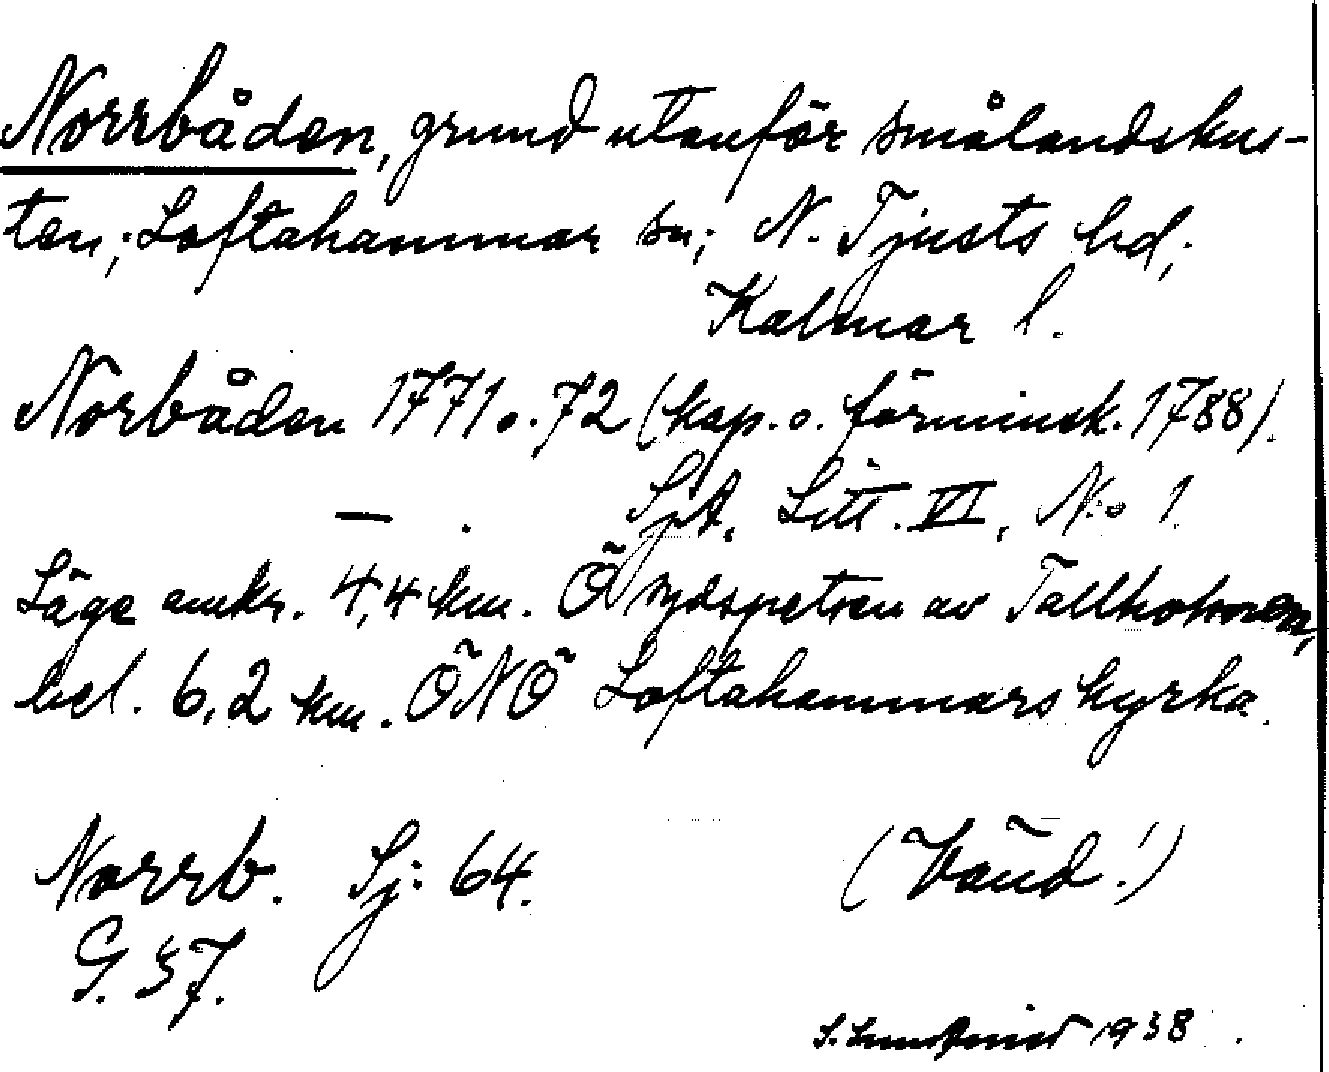 Norrbåden, grund utanför smålandskus-
ten; Loftahammar sn; N. Tjusts hd;
Kalmar l.
Norbåden 1771 o. 72 (kop. o. förminsk. 1788).
SjA. Litt. VI, N:o 1.
—
Läge omkr. 4,4 km. Ö sydspetsen av Tallholmen,
bel. 6,2 km. ÖNÖ Loftahammars kyrka.
Norrb. Sj: 64. (Vänd!)
G. 37.
1938.